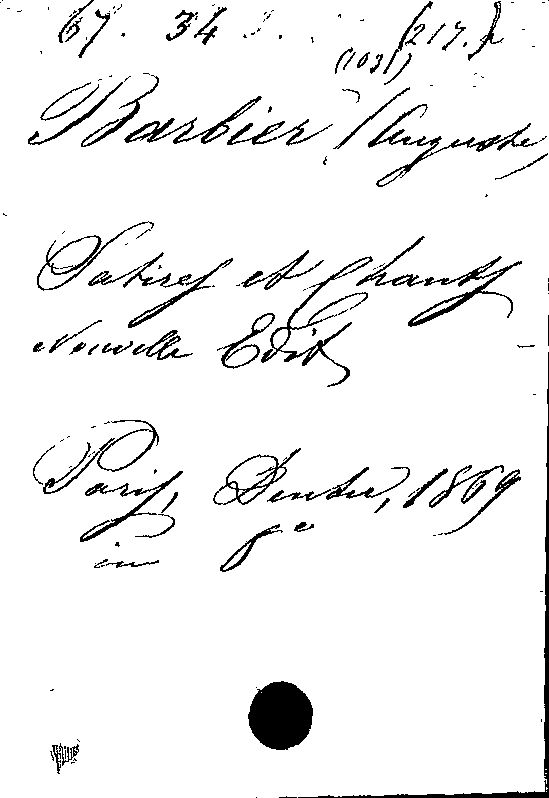 67. 34
(217.)
(1031)
Barbier (Auguste)
Satires et Chants
Nouvelle Edit
Paris, Dentu, 1869
in 8°